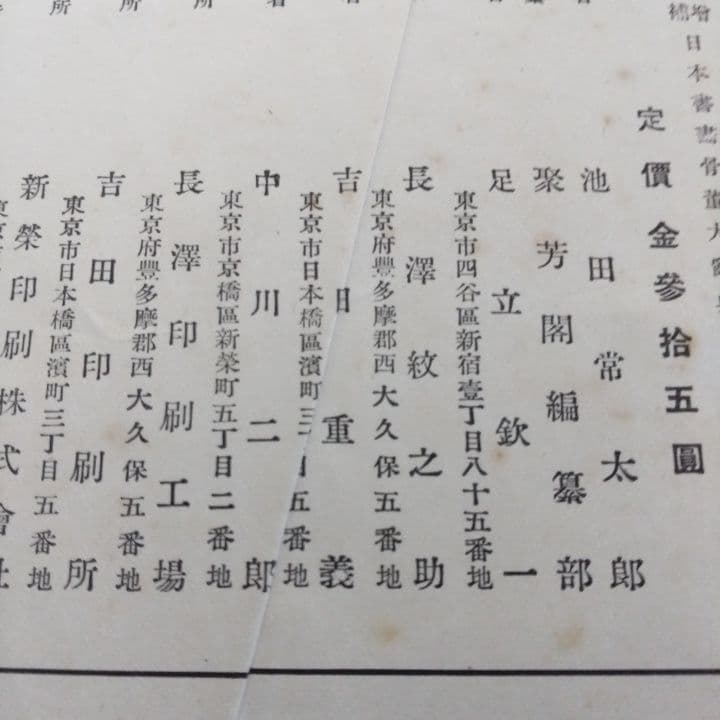 增補日本書畫骨董大寶鑑
定價金參拾五圓
池田常太郎
聚芳閣編纂部
足立欽一
東京市四谷區新宿壹丁目八十五番地
長澤紋之助
東京府豐多摩郡西大久保五番地
吉田重義
東京市日本橋區濱町三丁目五番地
中川二郎
東京市京橋區新榮町五丁目二番地
長澤印刷工場
東京府豐多摩郡西大久保五番地
吉田印刷所
東京市日本橋區濱町三丁目五番地
新榮印刷株式會社
東京